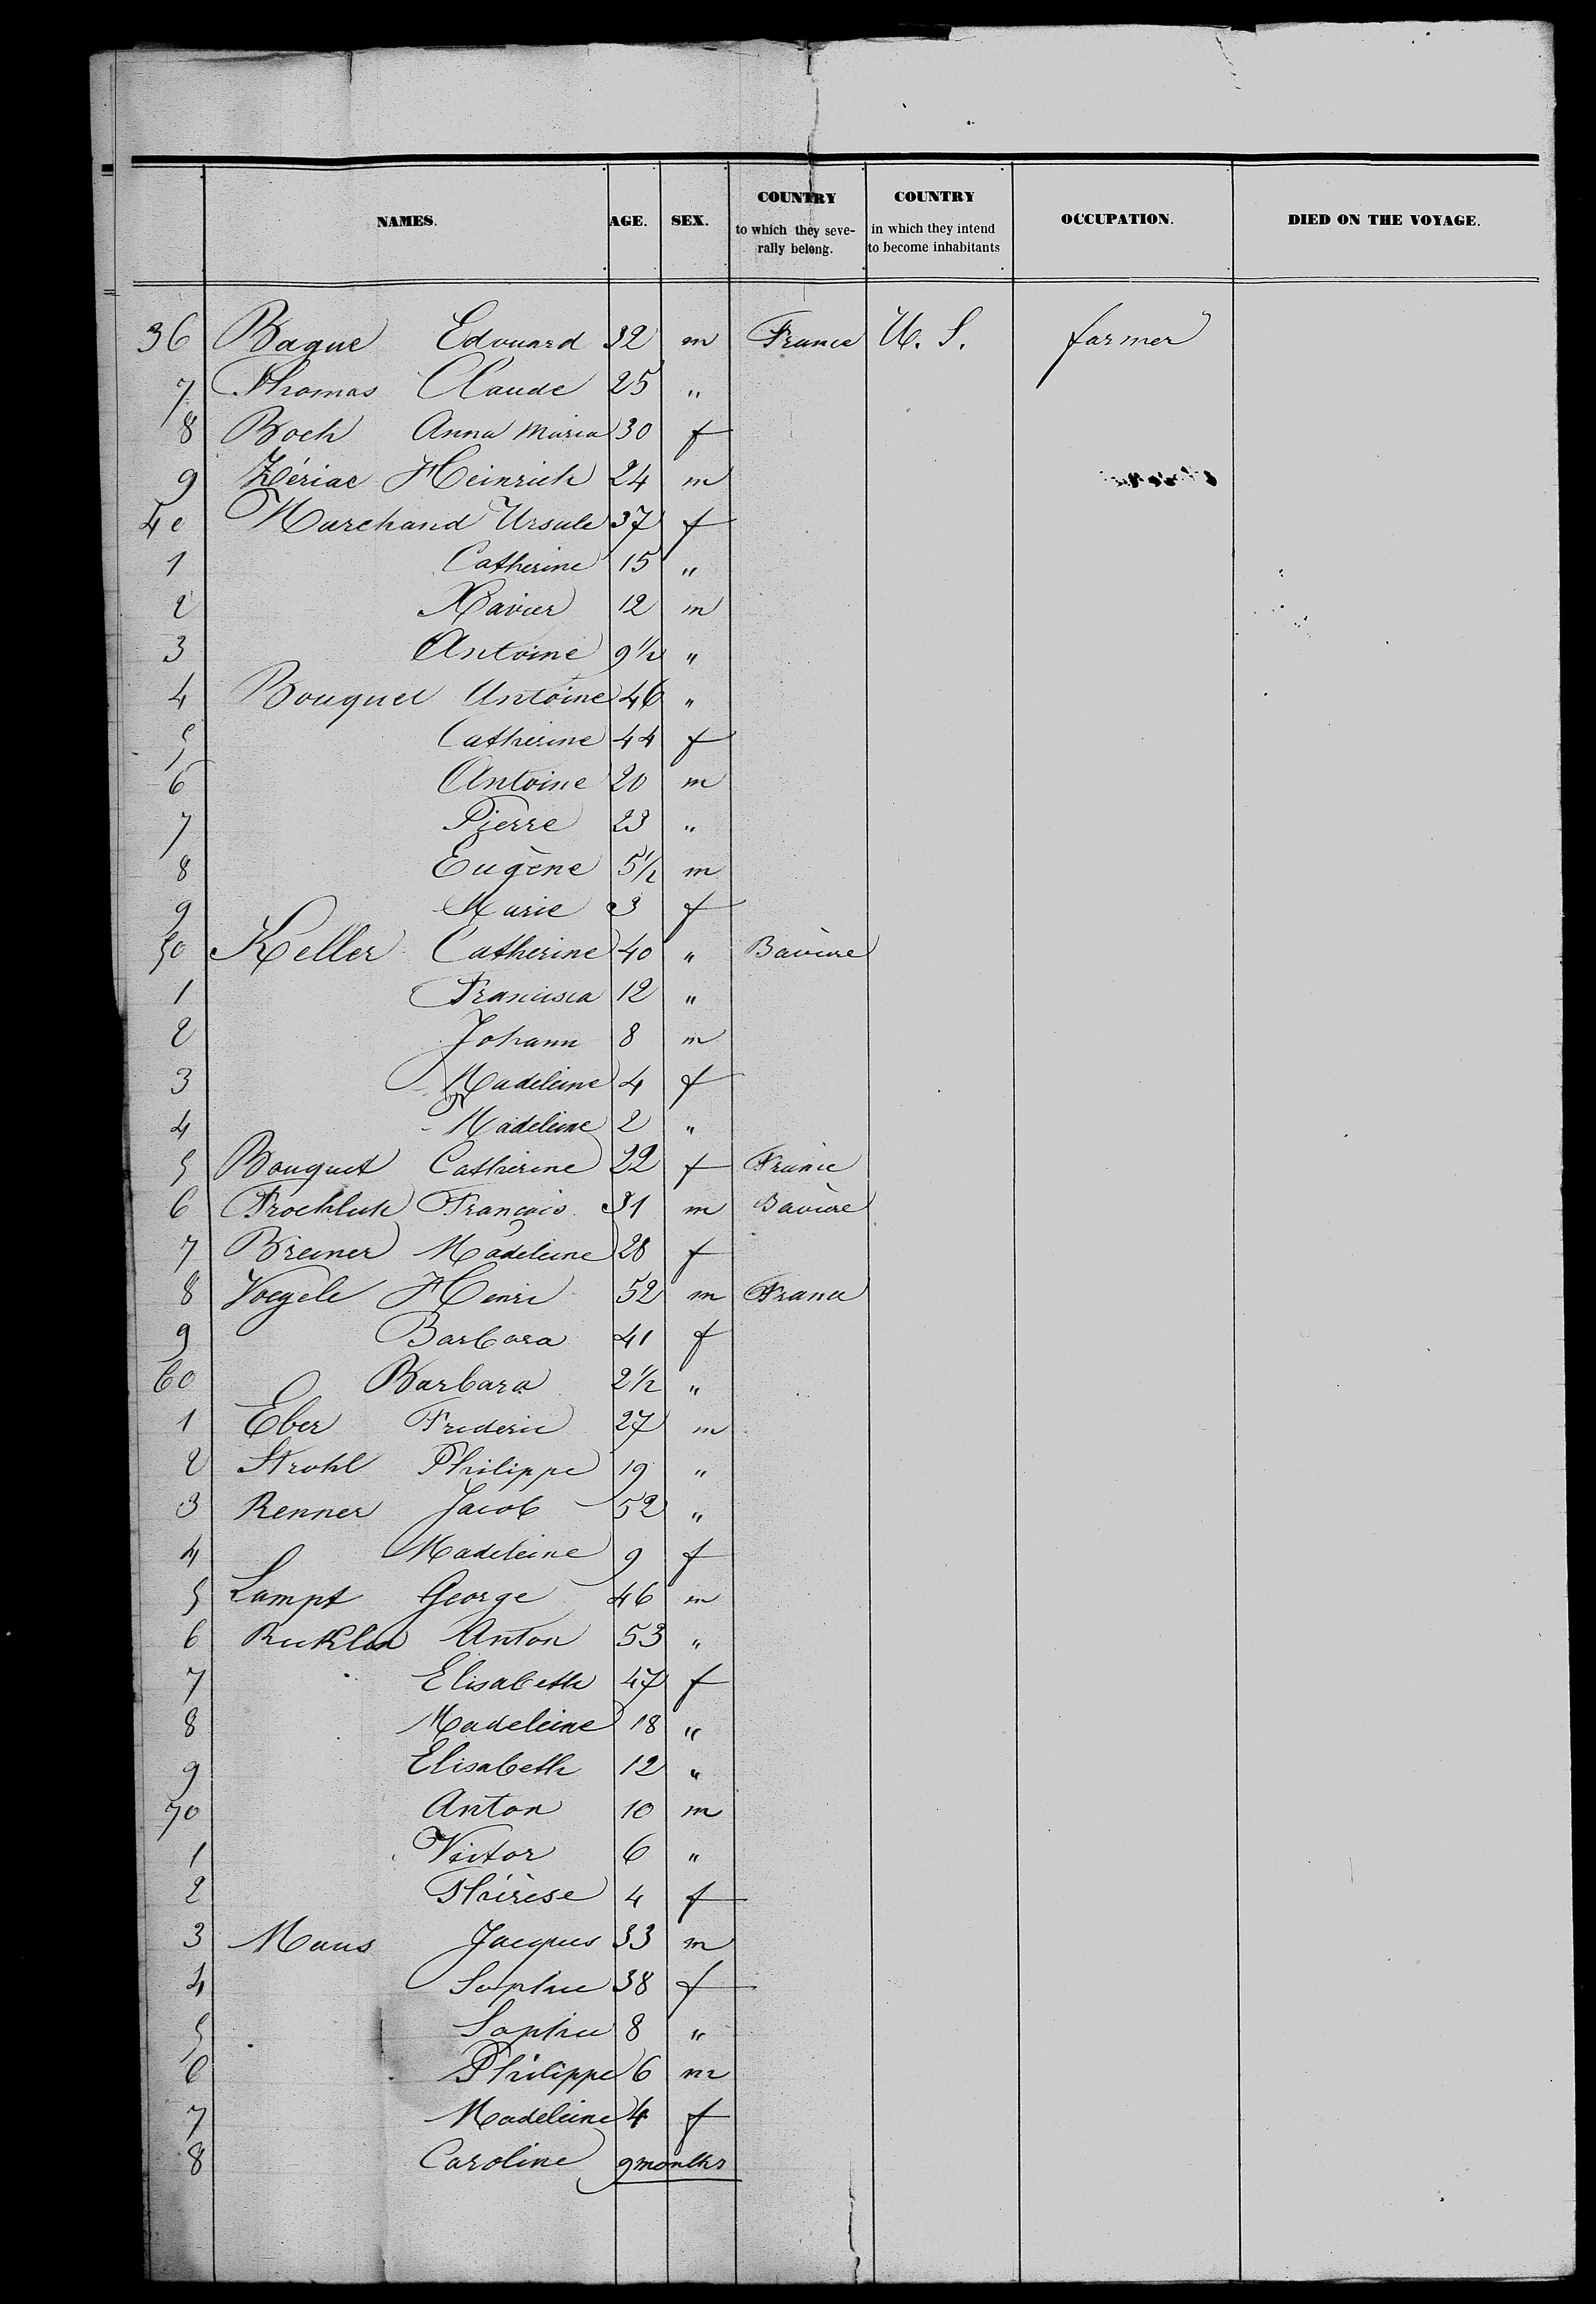 NAMES. AGE. SEX. COUNTRY to which they severally belong. COUNTRY in which they intend to become inhabitants OCCUPATION. DIED ON THE VOYAGE.
36 Bague Edouard 32 m France U. S. farmer
7 Thomas Claude 25 "
8 Boch Anna Maria 30 f
9 Zériac Heinrich 24 m
40 Marchand Ursule 37 f
1 Catherine 15 "
2 Xavier 12 m
3 Antoine 9 1/2 "
4 Bouquet Antoine 46 "
5 Catherine 44 f
6 Antoine 20 m
7 Pierre 23 "
8 Eugène 5 1/2 m
9 Marie 3 f
50 Keller Catherine 40 " Bavière
1 Francisca 12 "
2 Johann 8 m
3 Madeleine 4 f
4 Madeleine 2 "
5 Bouquet Catherine 22 f France
6 Froehlich François 31 m Bavière
7 Breiner Madeleine 28 f
8 Voegele Henri 52 m France
9 Barbara 41 f
60 Barbara 2 1/2 "
1 Eber Frederic 27 m
2 Strohl Philippe 19 "
3 Renner Jacob 52 "
4 Madeleine 9 f
5 Lampt George 46 m
6 Anton 53 "
7 Elisabeth 47 f
8 Madeleine 18 "
9 Elisabeth 12 "
70 Anton 10 m
1 Victor 6 "
2 Thérèse 4 f
3 Maus Jacques 33 m
4 Sophie 38 f
5 Sophie 8 "
6 Philippe 6 m
7 Madeleine 4 f
8 Caroline 9 months